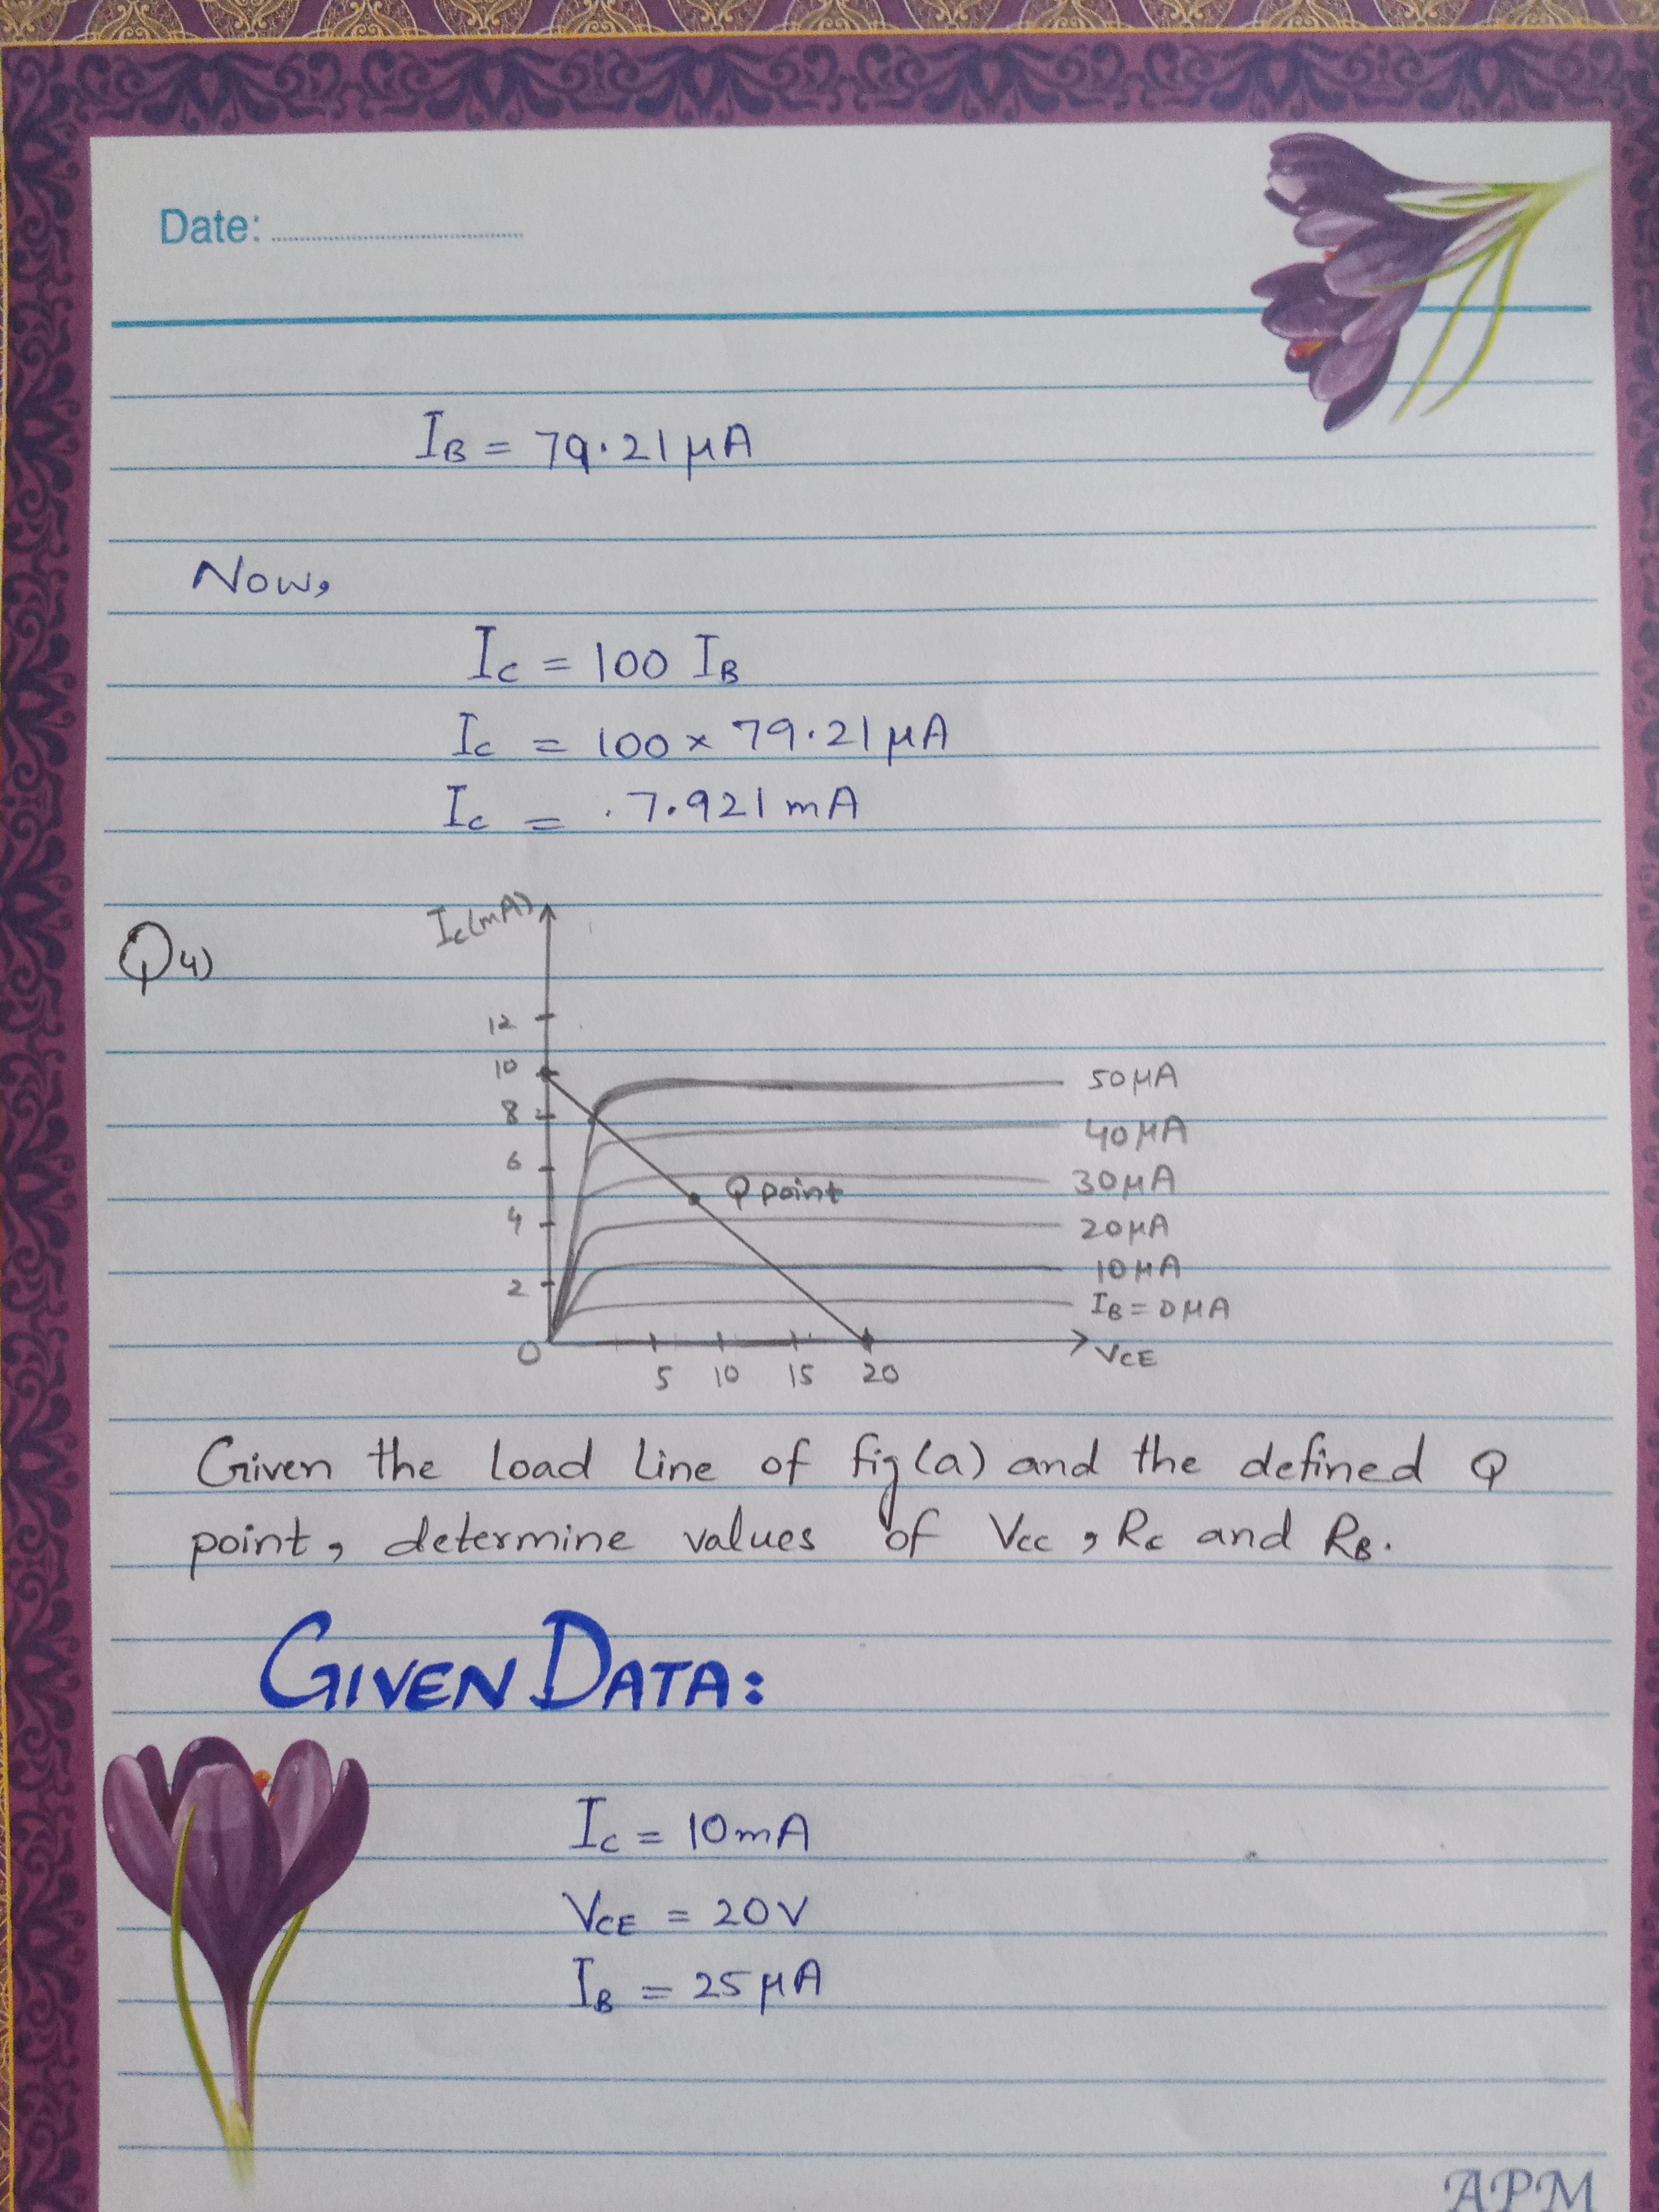 Date:
I_B = 79.21 μA
Now,
I_C = 100 I_B
I_C = 100 × 79.21 μA
I_C = .7.921 mA
Q4)
I_C(mA)
12
10
8
6
4
2
0
5 10 15 20
V_CE
Q point
50 μA
40 μA
30 μA
20 μA
10 μA
I_B = 0 μA
Given the load line of fig(a) and the defined Q
point, determine values of Vcc, Rc and R_B.
GIVEN DATA:
I_C = 10mA
V_CE = 20V
I_B = 25 μA
APM